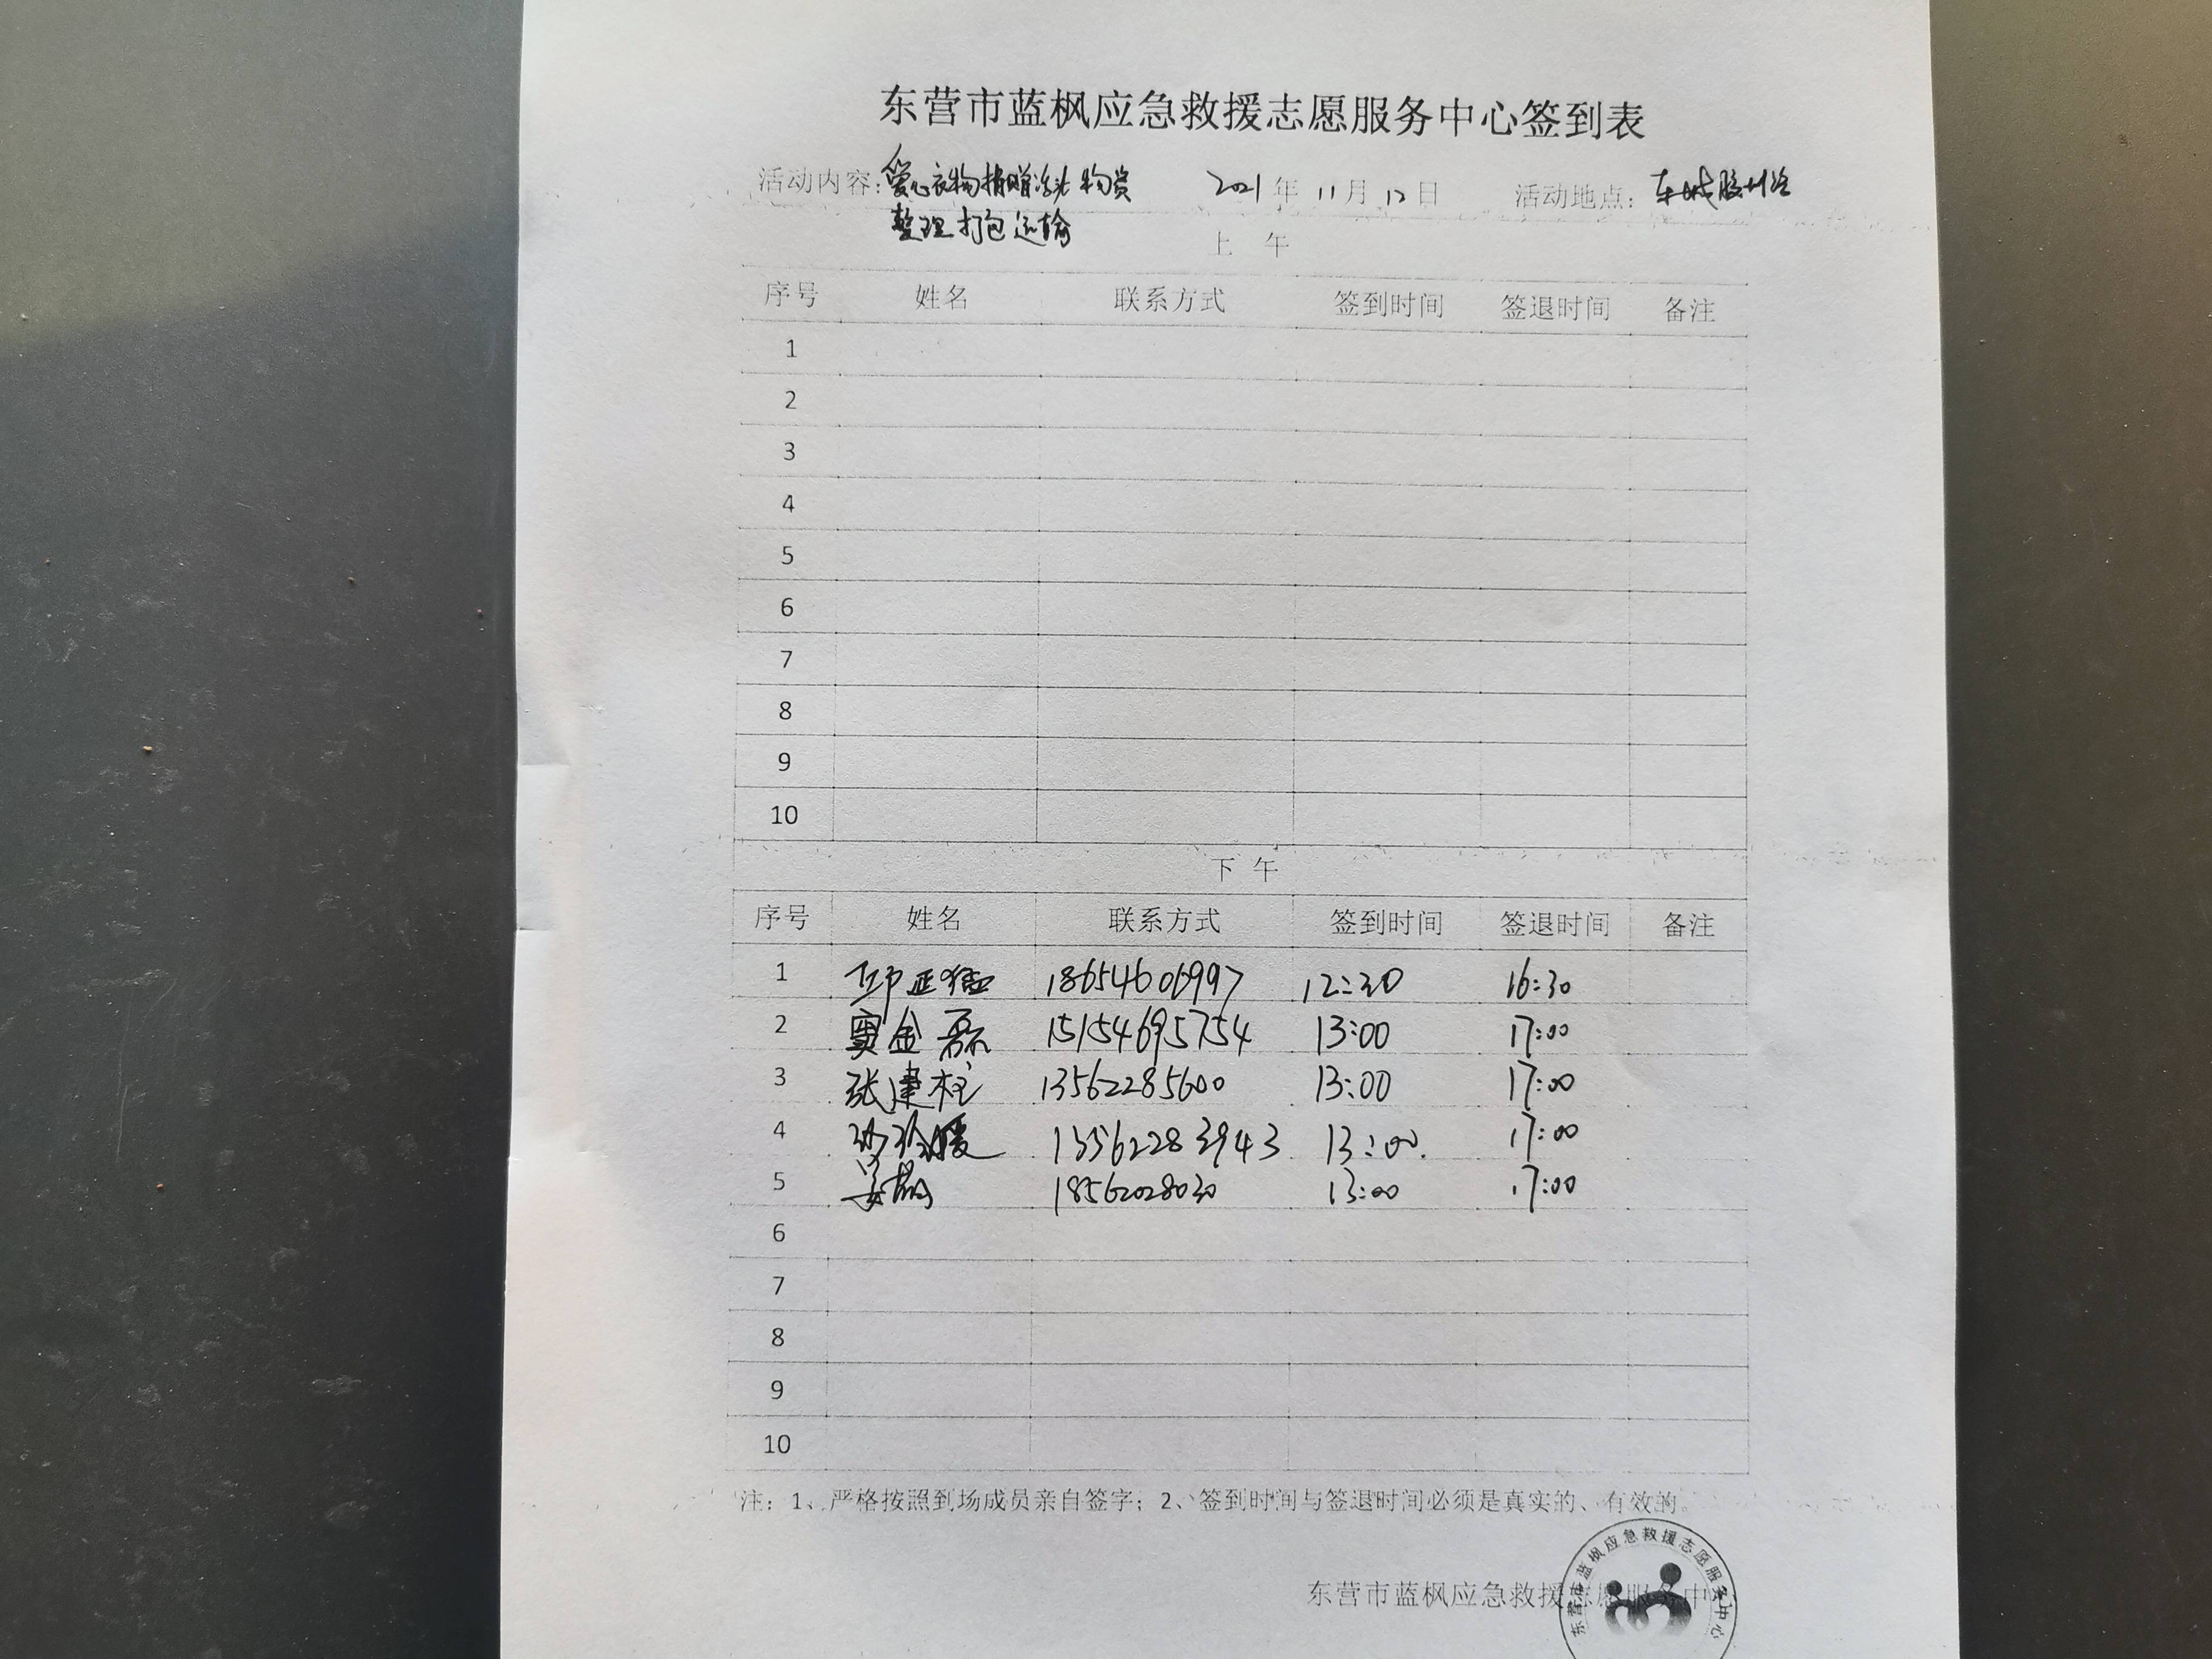 东营市蓝枫应急救援志愿服务中心签到表
活动内容：爱心衣物捐赠 物资 2021年11月12日 活动地点：东城胶州路
整理打包运输
上 午
序号 姓名 联系方式 签到时间 签退时间 备注
1
2
3
4
5
6
7
8
9
10
下 午
序号 姓名 联系方式 签到时间 签退时间 备注
1 邱正 18654606997 12:30 16:30
2 窦金磊 15154695754 13:00 17:00
3 张建柱 13562285600 13:00 17:00
4 13562283943 13:00. 17:00
5 姜 18562028030 13:00 17:00
6
7
8
9
10
注：1、严格按照到场成员亲自签字；2、签到时间与签退时间必须是真实的、有效的。
东营市蓝枫应急救援志愿服务中
东营市蓝枫应急救援志愿服务中心